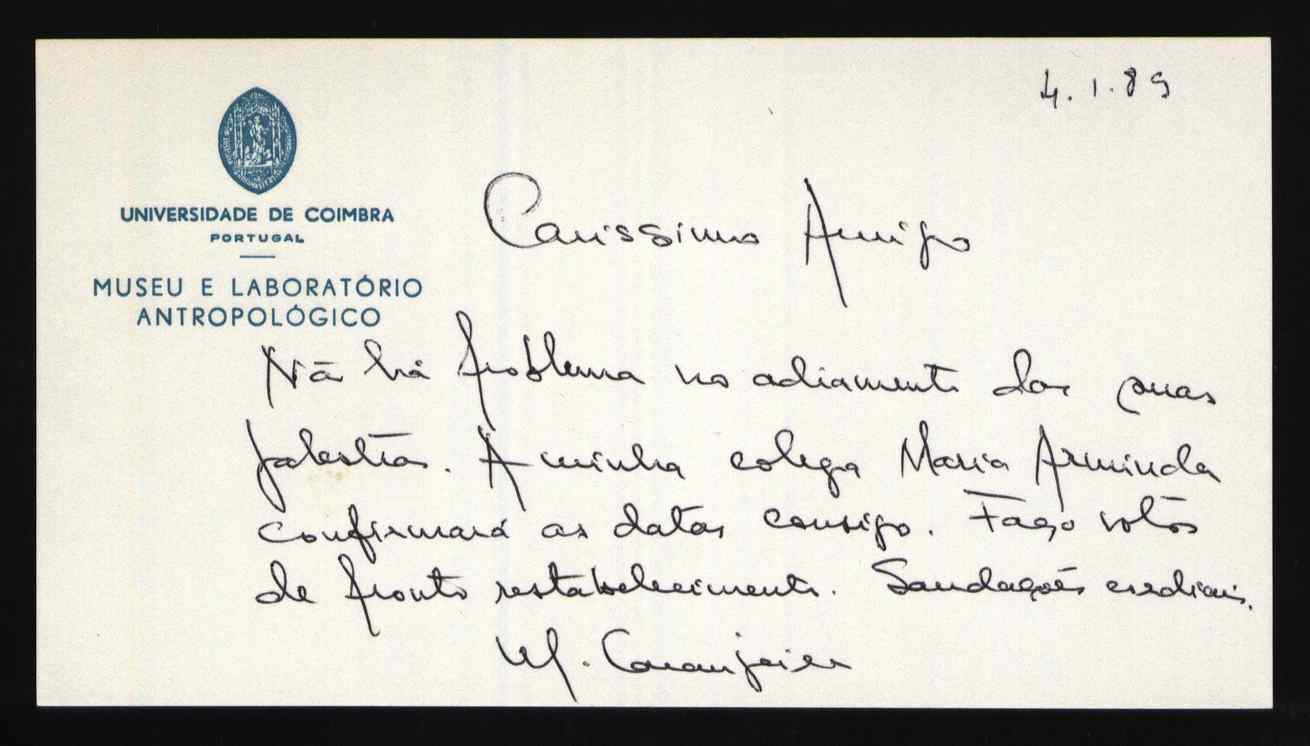 4.1.89
UNIVERSIDADE DE COIMBRA
PORTUGAL
MUSEU E LABORATÓRIO
ANTROPOLÓGICO
Caríssimo Amigo
Não há problema no adiamento das suas
palestras. A minha colega Maria Arminda
confirmará as datas consigo. Faço votos
de pronto restabelecimento. Saudações cordiais.
M. Laranjeira